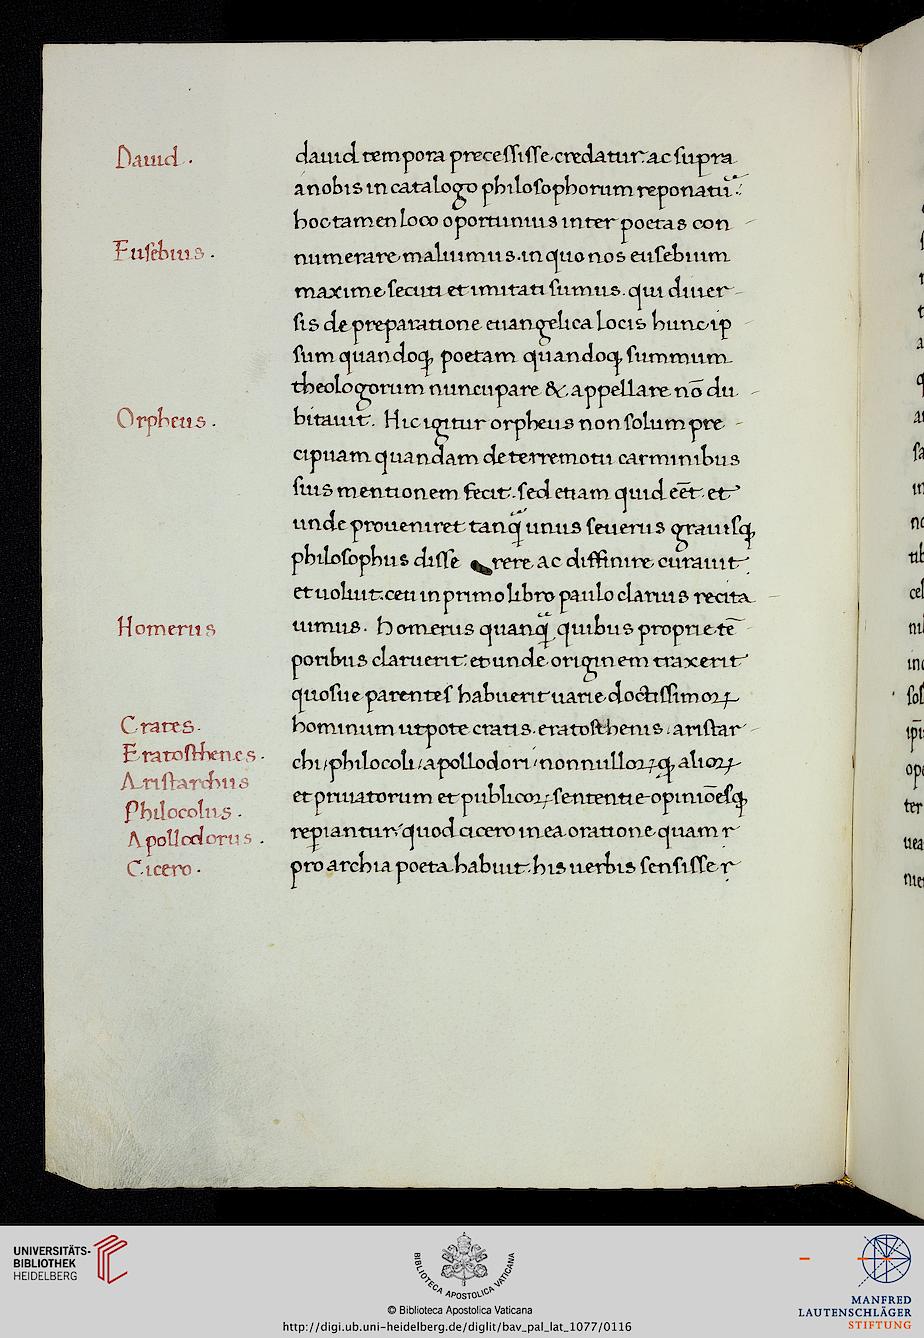 Dauid.
Eusebius.
Orpheus.
Homerus
Crates.
Eratosthenes.
Aristarchus
Philocolus.
Apollodorus.
Cicero.
dauid tempora precessisse credatur ac supra
a nobis in catalogo philosophorum reponatur:
hoc tamen loco oportunius inter poetas con-
numerare maluimus. in quo nos eusebium
maxime secuti et imitati sumus. qui diuer-
sis de preparatione euangelica locis hunc ip-
sum quandoq; poetam quandoq; summum
theologorum nuncupare & appellare nō du-
bitauit. Hic igitur orpheus non solum pre-
cipuam quandam de terremotu carminibus
suis mentionem fecit. sed etiam quid eēt et
unde proueniret tanq̃ unus seuerus grauisq;
philosophus disserere ac diffinire curauit
et uoluit. ceu in primo libro paulo clarius recita-
uimus. Homerus quanq̃ quibus proprie tē-
poribus claruerit: et unde originem traxerit
quosue parentes habuerit uarie doctissimoꝝ
hominum utpote cratis. eratosthenis. aristar-
chi, philocoli, apollodori, nonnulloꝝq; alioꝝ
et priuatorum et publicoꝝ sententie opiniōesq;
reperiantur quod cicero in ea oratione quam
pro archia poeta habuit. his uerbis sensisse
UNIVERSITÄTS-
BIBLIOTHEK
HEIDELBERG
BIBLIOTECA APOSTOLICA VATICANA
© Biblioteca Apostolica Vaticana
http://digi.ub.uni-heidelberg.de/diglit/bav_pal_lat_1077/0116
MANFRED
LAUTENSCHLÄGER
STIFTUNG